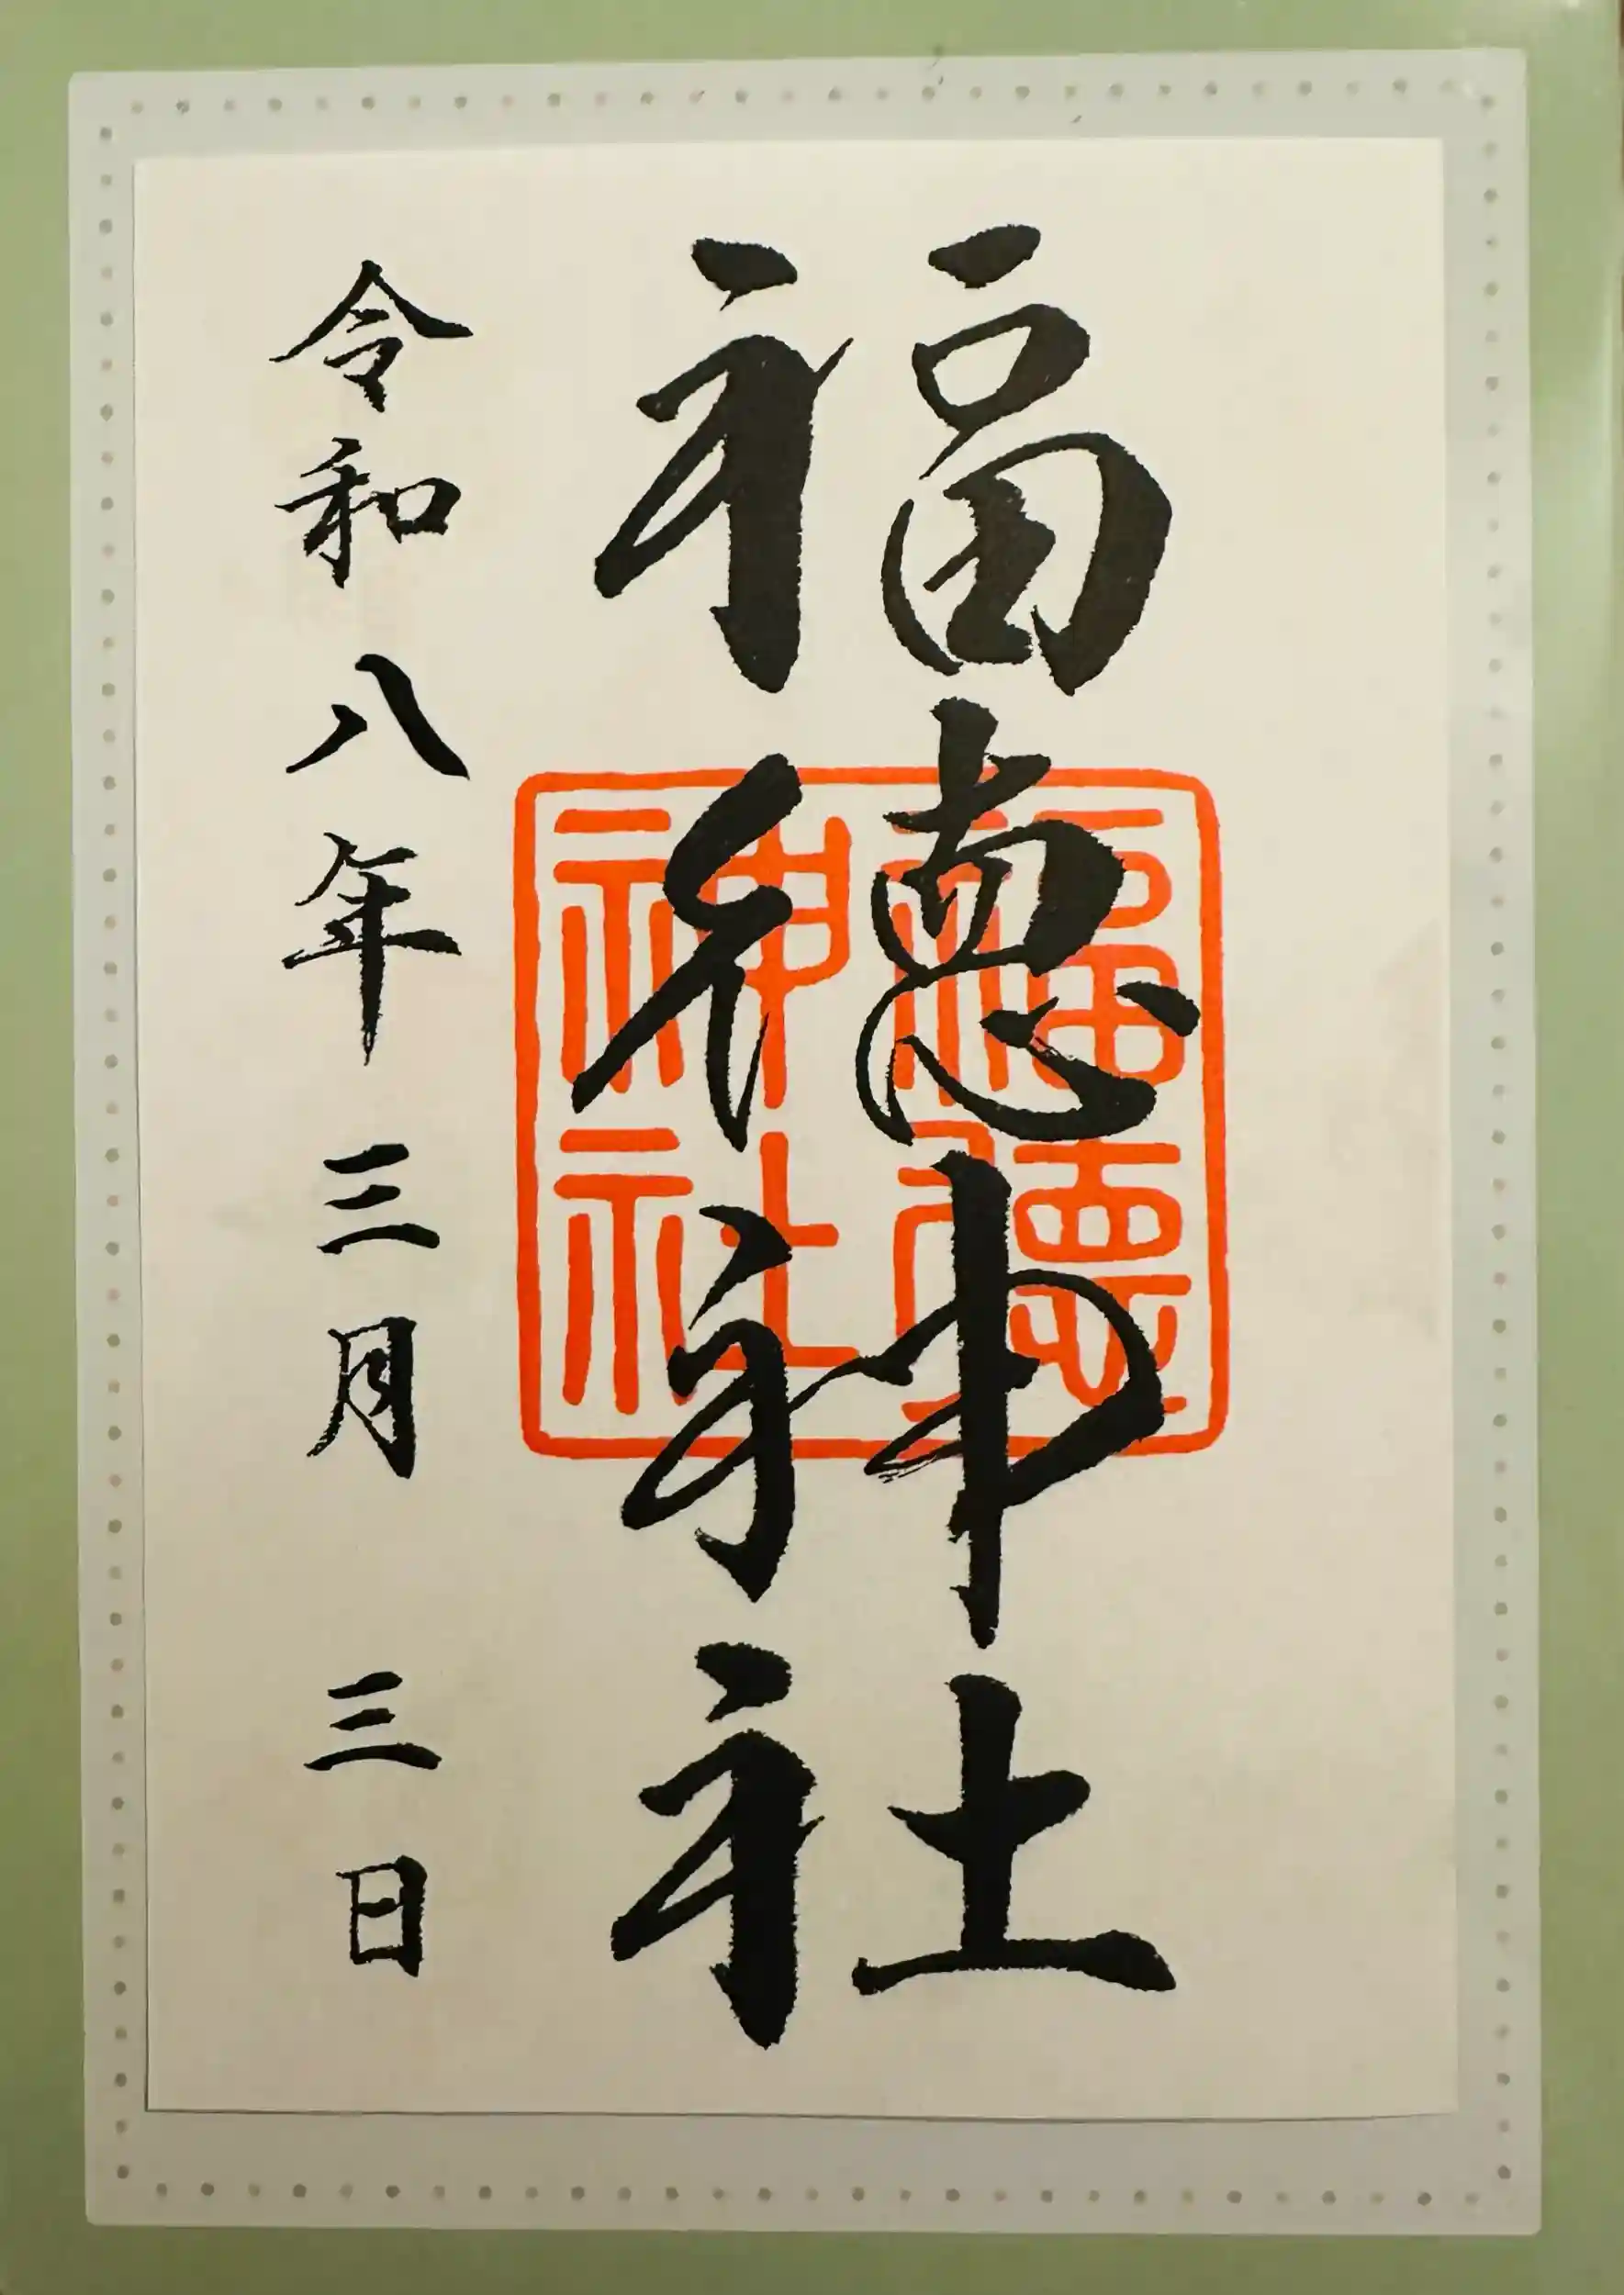 福徳神社
令和八年三月三日
福徳
神社